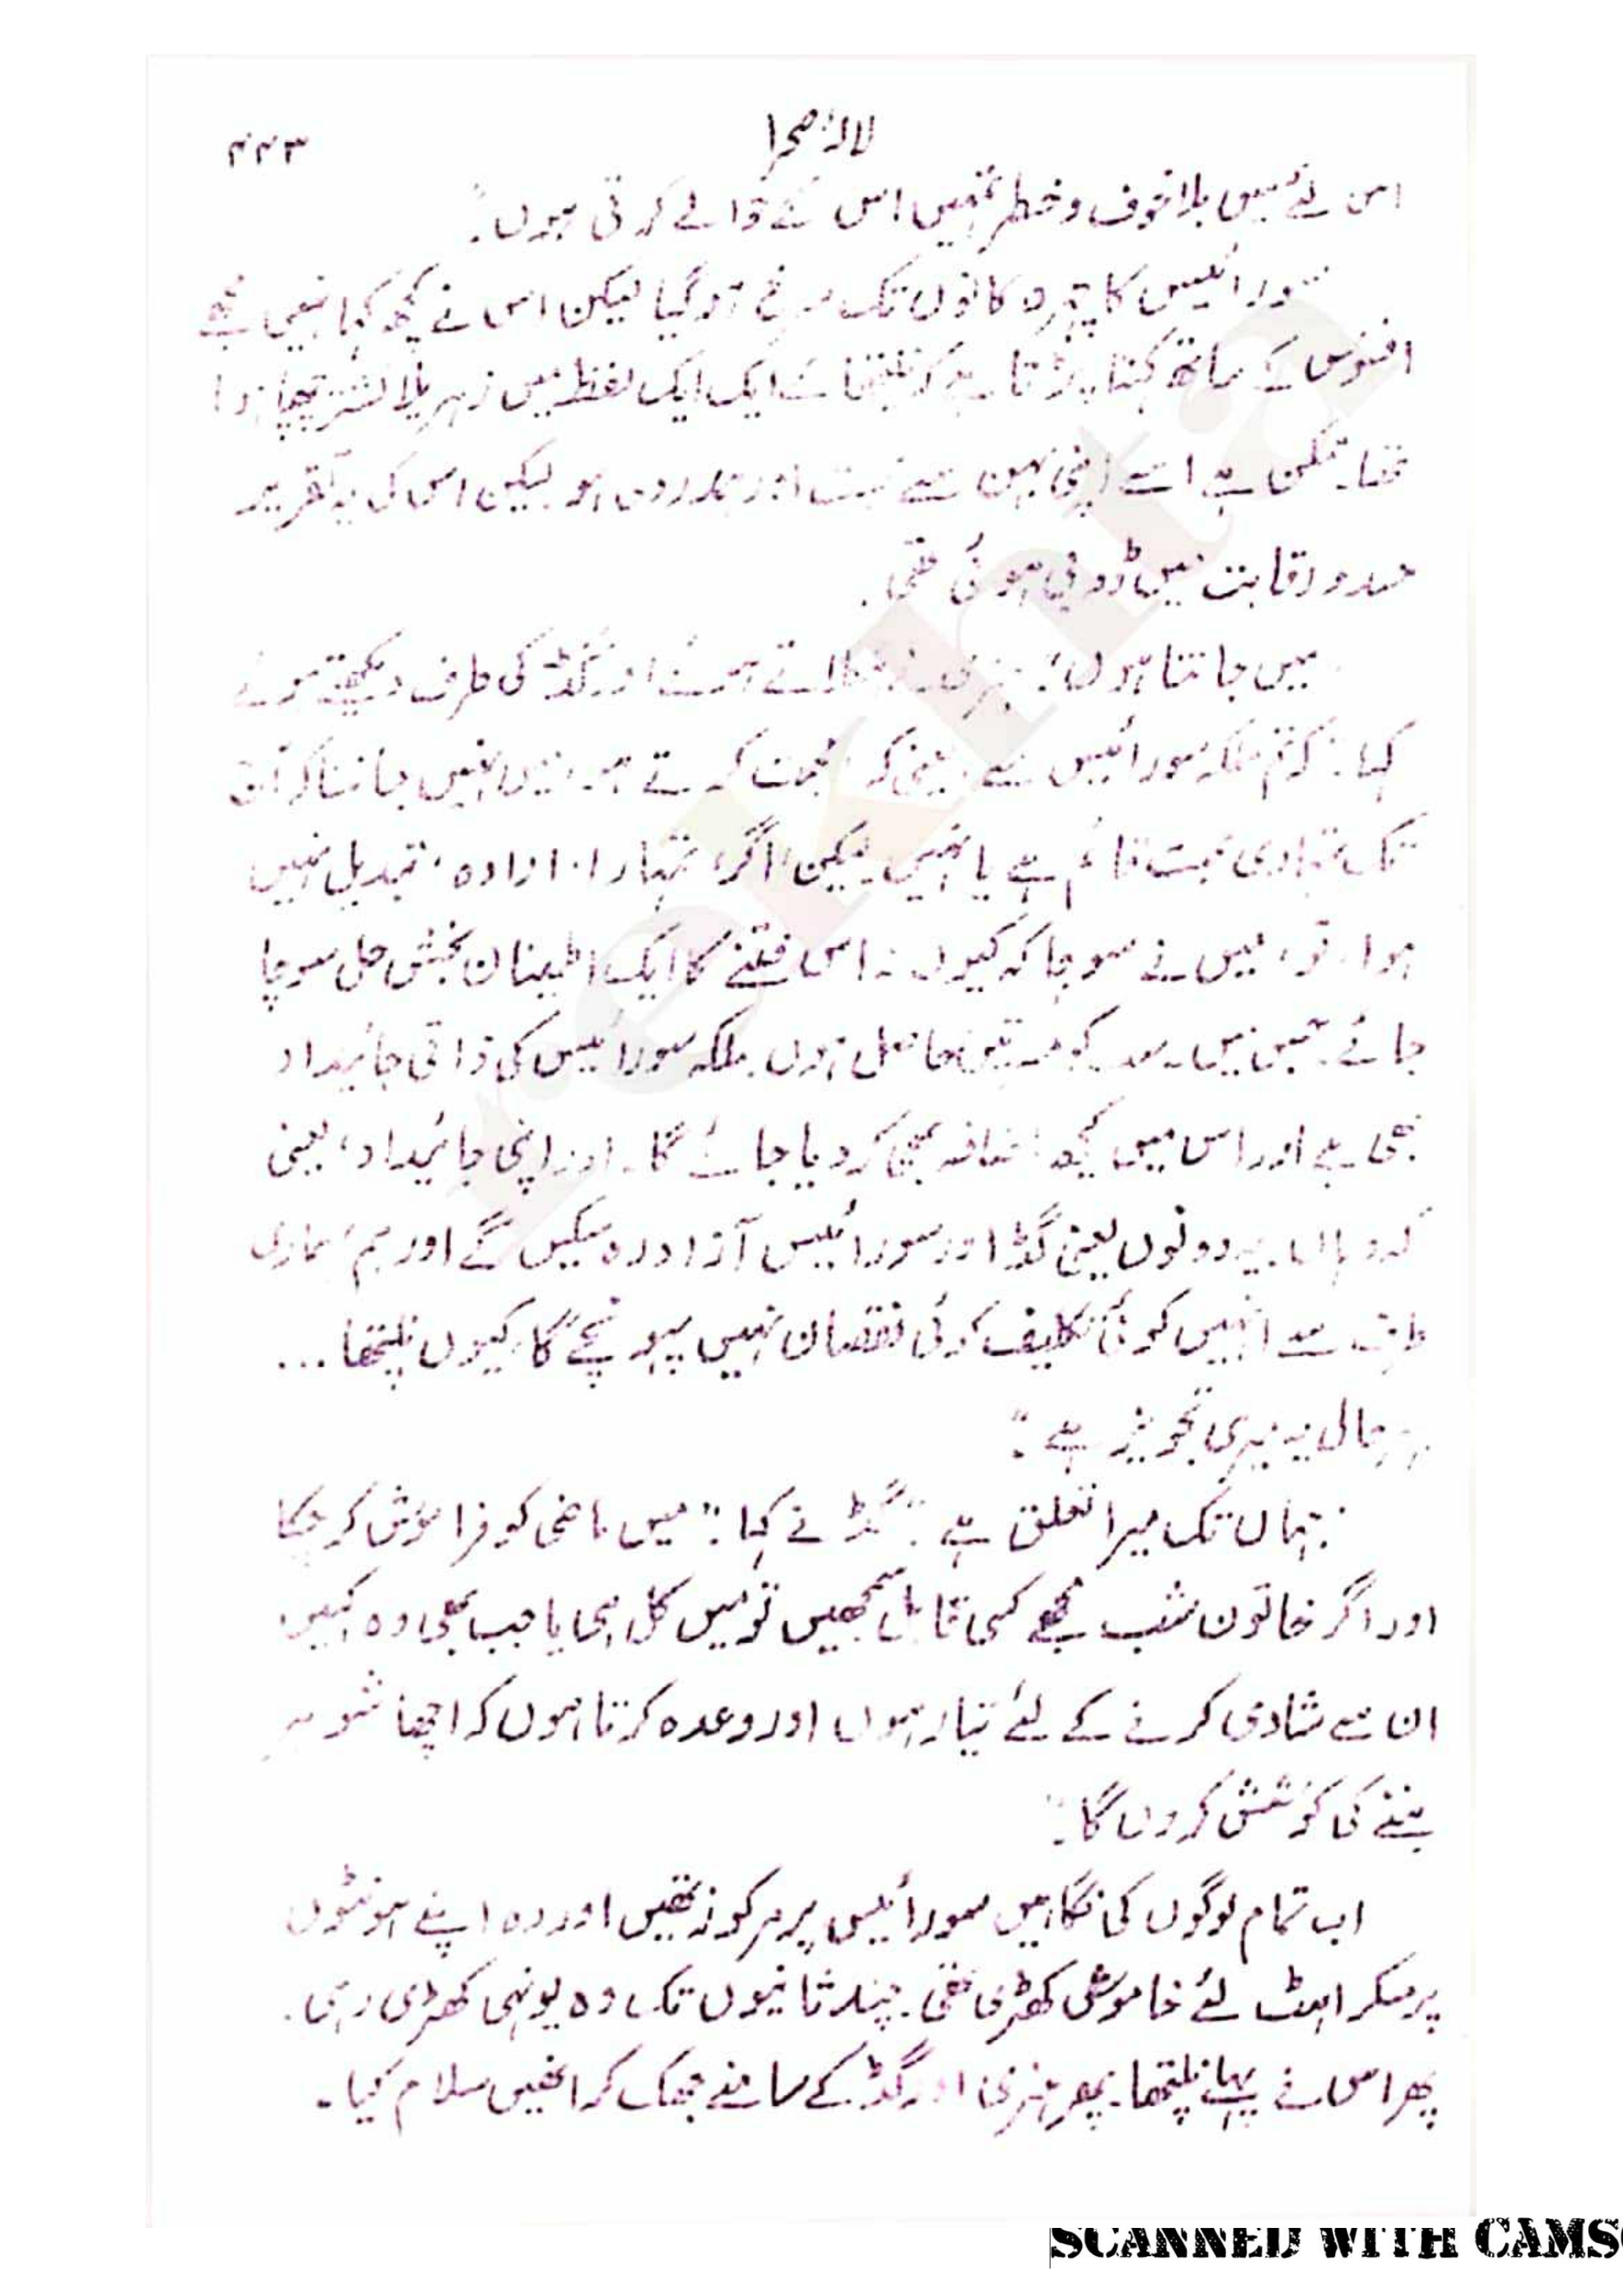 لالۂ صحرا
۴۴۳
اس لئے میں بلا خوف و خطر تمہیں اس کے حوالے کرتی ہوں۔"
سورائیس کا چہرہ کانوں تک سرخ ہو گیا لیکن اس نے کچھ کہا نہیں مجھے
افسوس کے ساتھ کہنا پڑتا ہے کہ نلپتھا کے ایک ایک لفظ میں زہریلا نشتر چھپا ہوا
تھا۔ ممکن ہے اسے اپنی بہن سے محبت اور ہمدردی ہو لیکن اس کی یہ تقریر
حسد و رقابت میں ڈوبی ہوئی تھی۔
"میں جانتا ہوں"۔ ہنری نے ہوئے اور گڈ کی طرف دیکھتے ہوئے
کہا۔ کہ تم ملکہ سورائیس سے محبت کرتے ہو۔ میں نہیں جانتا کہ اب
تک تمہاری محبت قائم ہے یا نہیں۔ لیکن اگر، تمہارا، ارادہ، تبدیل نہیں
ہوا، تو، میں نے سوچا کہ کیوں نہ اس فتنے کا ایک اطمینان بخش حل سوچا
جائے۔ جس میں سب کو حاصل ہوں۔ ملکہ سورائیس کی ذاتی جائیداد
بھی ہے اور اس میں کچھ اضافہ بھی کر دیا جائے گا۔ اور اپنی جائیداد، یعنی
کہ وہاں۔ یہ دونوں یعنی گڈ اور سورائیس آزاد رہ سکیں گے اور ہم، ہماری
طرف سے انہیں کوئی تکلیف کوئی نقصان نہیں پہونچے گا، کیوں نلپتھا...
بہرحال یہ میری تجویز ہے۔"
"جہاں تک میرا تعلق ہے۔" گڈ نے کہا۔" میں ماضی کو فراموش کر چکا
اور اگر خاتون شب مجھے کسی قابل سمجھیں تو میں کل ہی یا جب بھی وہ کہیں
ان سے شادی کرنے کے لئے تیار ہوں اور وعدہ کرتا ہوں کہ اچھا شوہر
بننے کی کوشش کروں گا۔"
اب تمام لوگوں کی نگاہیں سورائیس پر مرکوز تھیں اور وہ اپنے ہونٹوں
پر مسکراہٹ لئے خاموش کھڑی تھی۔ چند ثانیوں تک وہ یونہی کھڑی رہی۔
پھر اس نے پہلے نلپتھا۔ پھر ہنری اور گڈ کے سامنے جھک کر انھیں سلام کیا۔
SCANNED WITH CAMS
rekhta